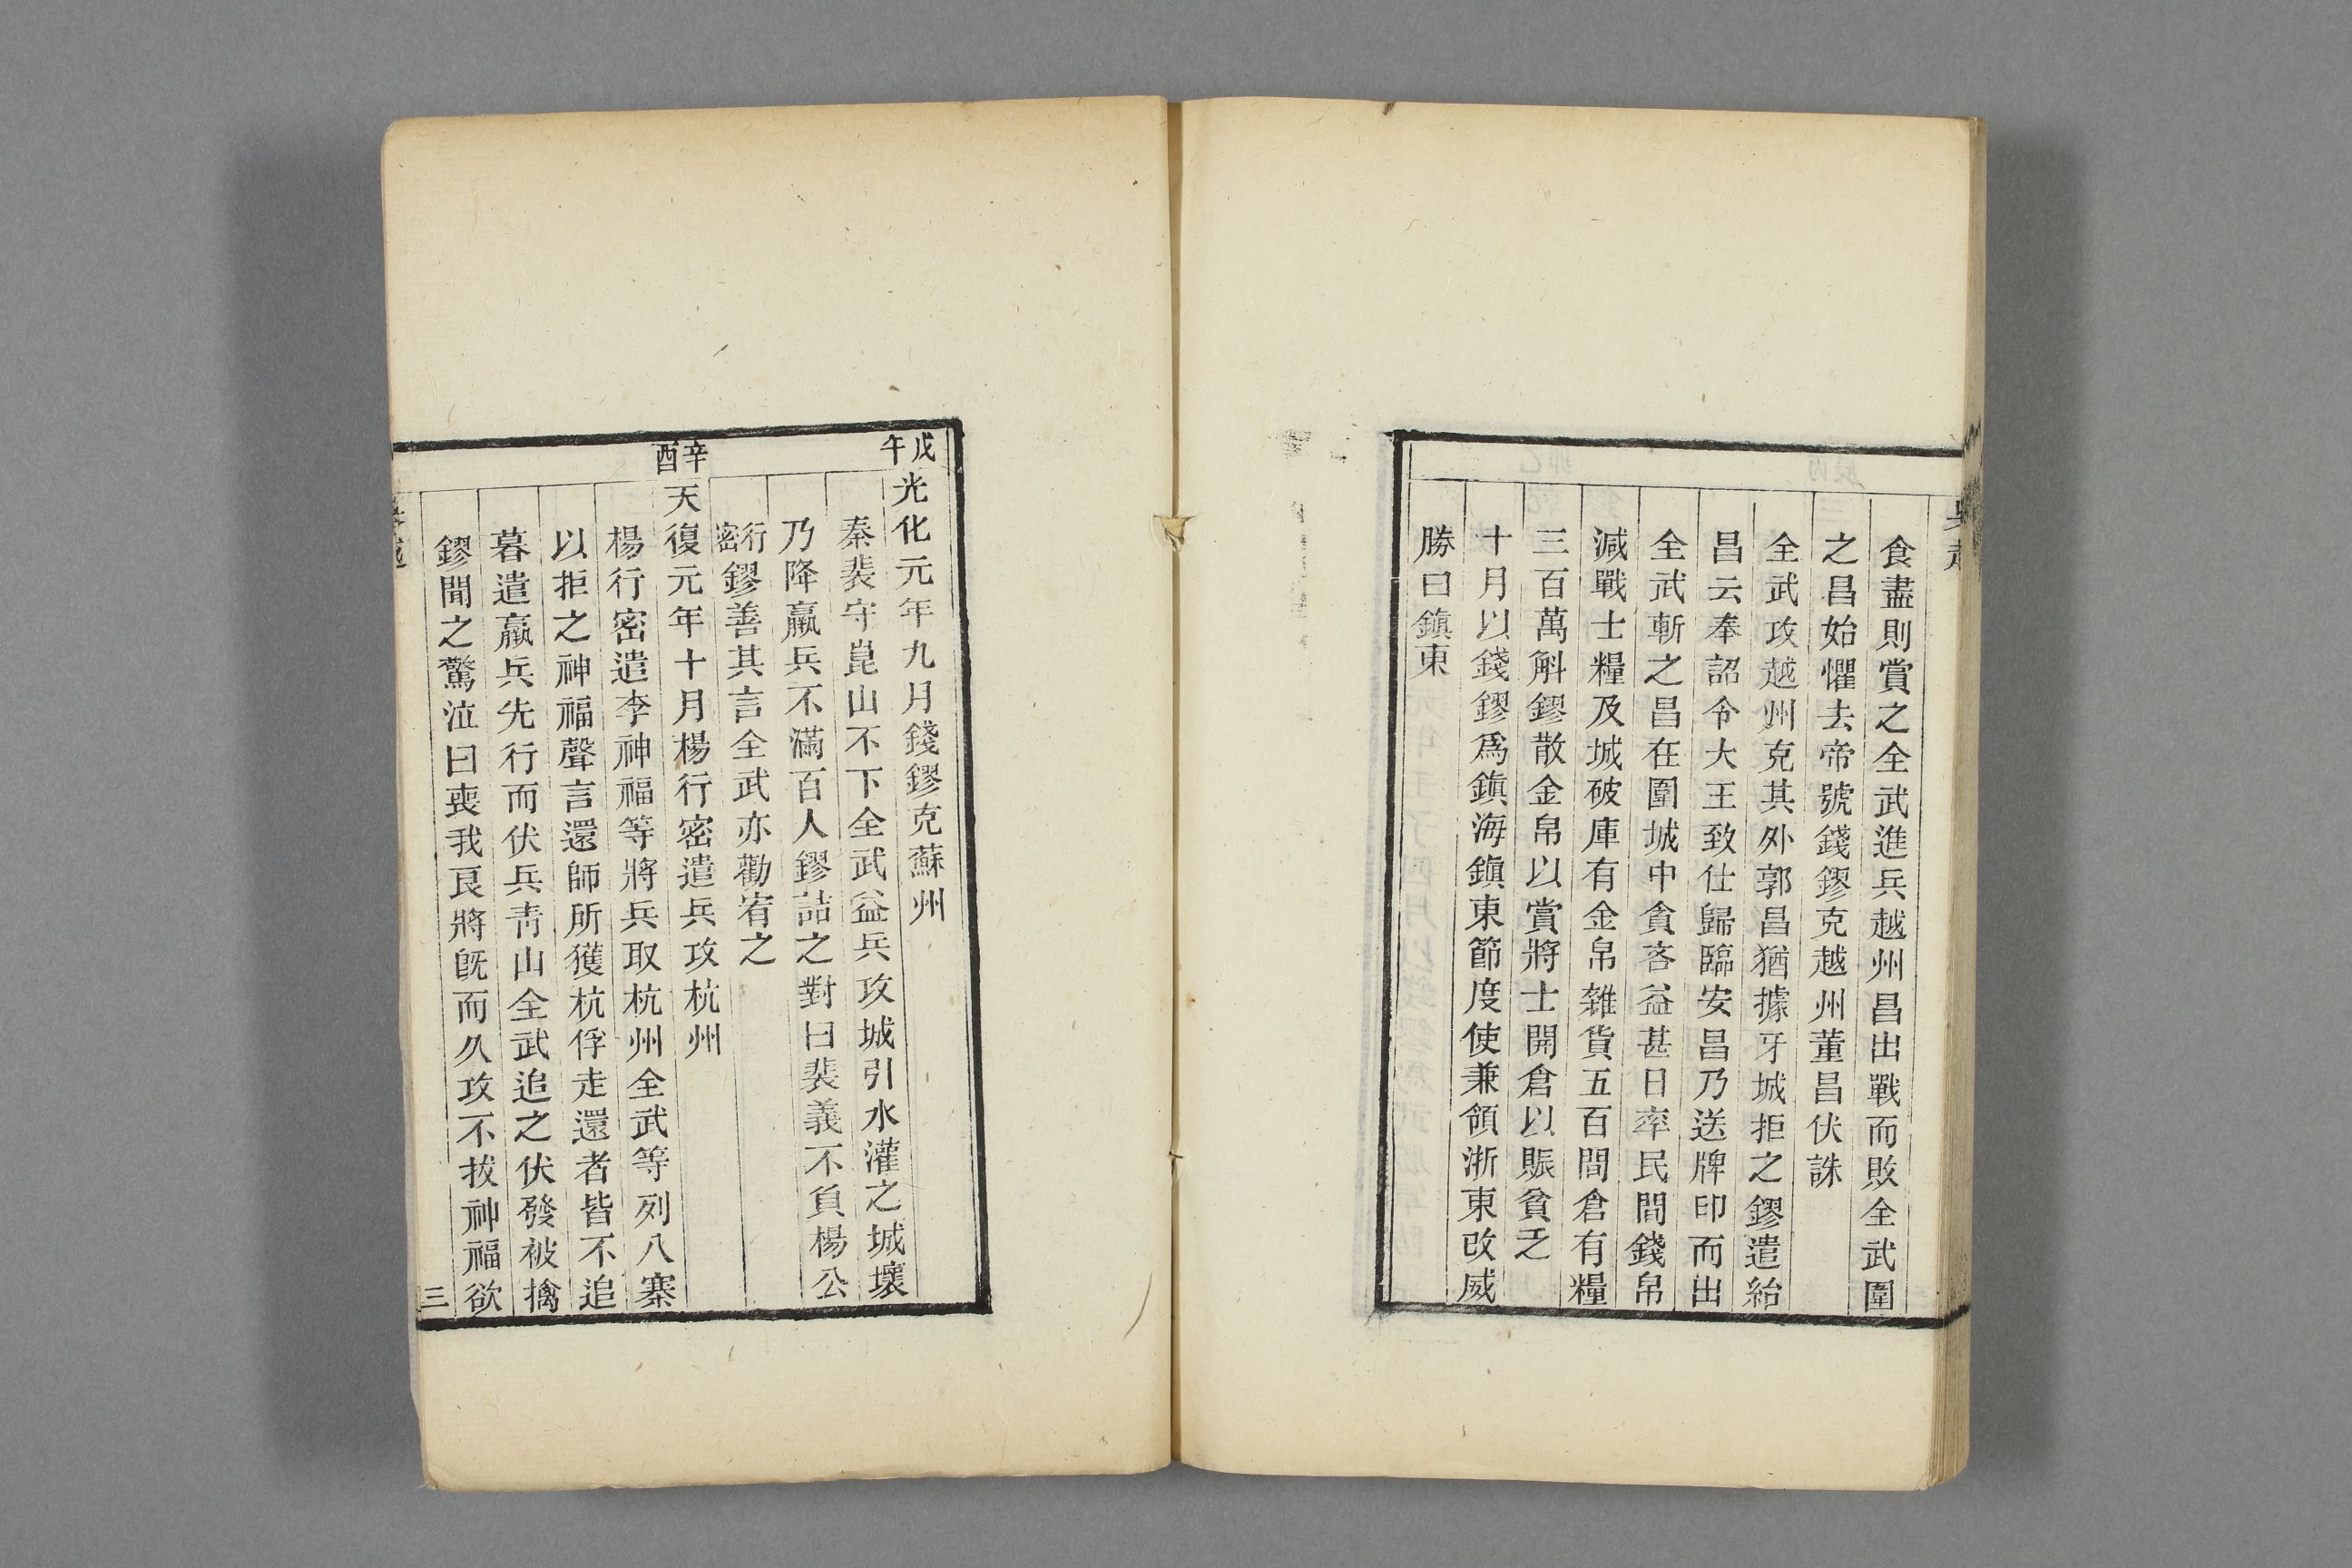 食盡則賞之全武進兵越州昌出戰而敗全武圍
之昌始懼去帝號錢鏐克越州董昌伏誅
全武攻越州克其外郭昌猶據牙城拒之鏐遣紿
昌云奉詔令大王致仕歸臨安昌乃送牌印而出
全武斬之昌在圍城中貪吝益甚日率民間錢帛
減戰士糧及城破庫有金帛雜貨五百間倉有糧
三百萬斛鏐散金帛以賞將士開倉以賑貧乏
十月以錢鏐爲鎭海鎭東節度使兼領浙東改威
勝曰鎭東
戊午
光化元年九月錢鏐克蘇州
秦裴守崑山不下全武益兵攻城引水灌之城壞
乃降羸兵不滿百人鏐詰之對曰裴義不負楊公
行密鏐善其言全武亦勸宥之
辛酉
天復元年十月楊行密遣兵攻杭州
楊行密遣李神福等將兵取杭州全武等列八寨
以拒之神福聲言還師所獲杭俘走還者皆不追
暮遣羸兵先行而伏兵靑山全武追之伏發被擒
鏐聞之驚泣曰喪我良將旣而久攻不拔神福欲
三